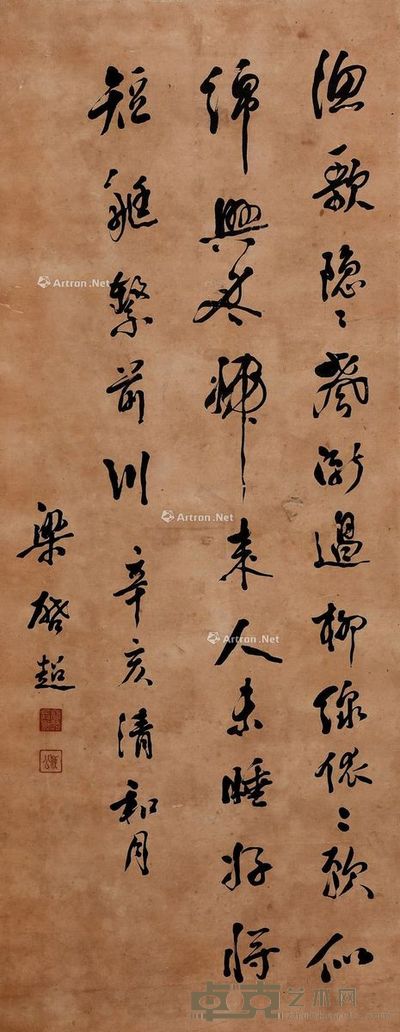 漁歌隱〻漸過柳線依〻軟似
綿興盡歸來人未睡好將
短艇繫前川辛亥清和月
梁啟超
Artron.Net
Artron.Net
Artron.Net
卓克艺术网